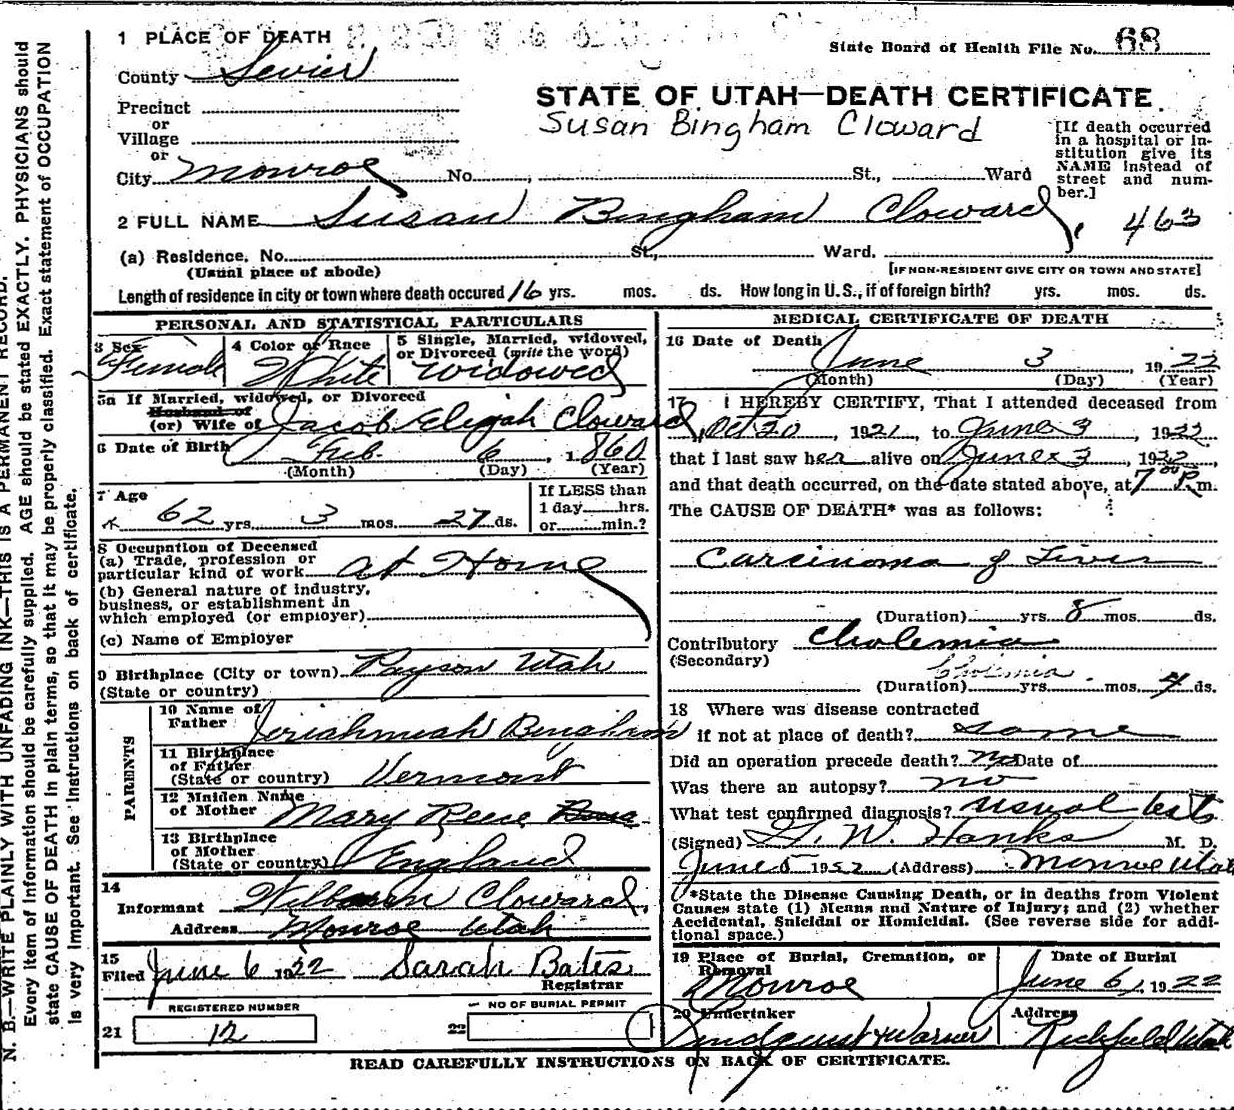 1 PLACE OF DEATH
State Board of Health File No. 68
County Sevier
STATE OF UTAH—DEATH CERTIFICATE.
Precinct
or
Village
or
Susan Bingham Cloward
[If death occurred in a hospital or in-
stitution give its
NAME instead of
street and num-
ber.]
City Monroe No. , St., Ward
2 FULL NAME Susan Bingham Cloward, 463
(a) Residence. No. St., Ward.
(Usual place of abode)
[IF NON-RESIDENT GIVE CITY OR TOWN AND STATE]
Length of residence in city or town where death occured 16 yrs. mos. ds. How long in U.S., if of foreign birth? yrs. mos. ds.
PERSONAL AND STATISTICAL PARTICULARS
3 Sex Female
4 Color or Race White
5 Single, Married, widowed,
or Divorced (write the word)
Widowed
5a If Married, widowed, or Divorced
Husband of
(or) Wife of Jacob Elijah Cloward
6 Date of Birth Feb. 6, 1860
(Month) (Day) (Year)
7 Age
62 yrs. 3 mos. 27 ds.
If LESS than
1 day hrs.
or min.?
8 Occupation of Deceased
(a) Trade, profession or
particular kind of work At Home
(b) General nature of industry,
business, or establishment in
which employed (or employer)
(c) Name of Employer
9 Birthplace (City or town) Payson Utah
(State or country)
PARENTS
10 Name of
Father Jeriahmiah Bingham
11 Birthplace
of Father
(State or country) Vermont
12 Maiden Name
of Mother Mary Reece
13 Birthplace
of Mother
(State or country) England
14
Informant Cloward,
Address Monroe Utah
15
Filed June 6 1922 Sarah Bates
Registrar
REGISTERED NUMBER
21 12
NO OF BURIAL PERMIT
22
MEDICAL CERTIFICATE OF DEATH
16 Date of Death June 3 1922
(Month) (Day) (Year)
17 I HEREBY CERTIFY, That I attended deceased from
Oct 20, 1921, to June 3, 1922
that I last saw her alive on June 3, 1922
and that death occurred, on the date stated above, at 7 00 P.m.
The CAUSE OF DEATH* was as follows:
Carcinoma of Liver
(Duration) yrs. 8 mos. ds.
Contributory Cholemia
(Secondary)
Cholemia
(Duration) yrs. mos. 4 ds.
18 Where was disease contracted
if not at place of death? Same
Did an operation precede death? No Date of
Was there an autopsy? no
What test confirmed diagnosis? usual tests
(Signed) G. W. Hanks M. D.
June 5 1922 (Address) Monroe Utah
*State the Disease Causing Death, or in deaths from Violent
Causes state (1) Means and Nature of Injury; and (2) whether
Accidental, Suicidal or Homicidal. (See reverse side for addi-
tional space.)
19 Place of Burial, Cremation, or
Removal
Monroe
Date of Burial
June 6, 1922
20 Undertaker
& Warner
Address
Richfield Utah
READ CAREFULLY INSTRUCTIONS ON BACK OF CERTIFICATE.
N. B.—WRITE PLAINLY WITH UNFADING INK—THIS IS A PERMANENT RECORD.
Every item of information should be carefully supplied. AGE should be stated EXACTLY. PHYSICIANS should
state CAUSE OF DEATH in plain terms, so that it may be properly classified. Exact statement of OCCUPATION
is very important. See instructions on back of certificate.